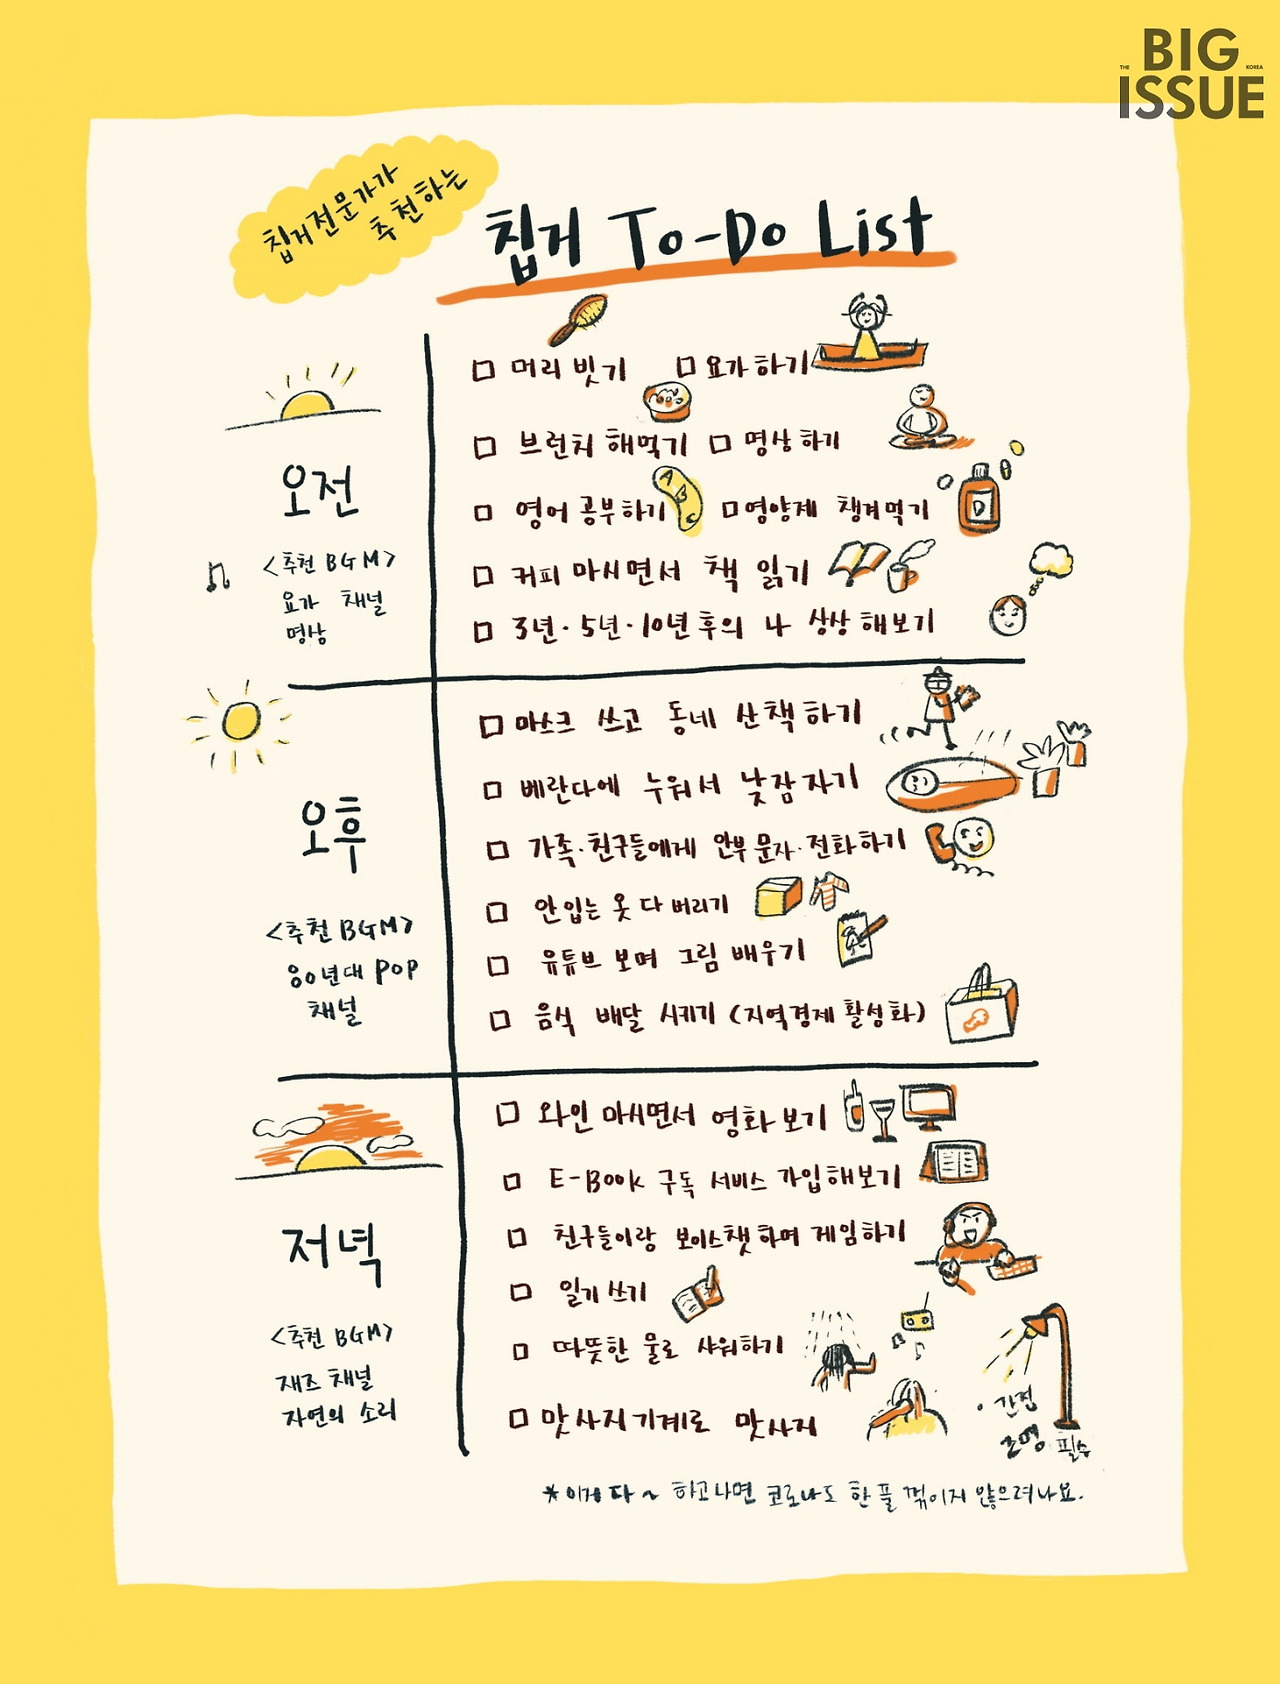 THE BIG KOREA
ISSUE
칩거전문가가
추천하는
칩거 To-Do List
오전
<추천 BGM>
요가 채널
명상
□ 머리 빗기 □ 요가하기
□ 브런치 해먹기 □ 명상하기
□ 영어 공부하기 □ 영양제 챙겨먹기
A
B
C
D
□ 커피 마시면서 책 읽기
□ 3년·5년·10년후의 나 상상해보기
오후
<추천 BGM>
80년대 POP
채널
□ 마스크 쓰고 동네 산책하기
□ 베란다에 누워서 낮잠자기
□ 가족·친구들에게 안부 문자·전화하기
□ 안입는 옷 다 버리기
□ 유튜브 보며 그림 배우기
□ 음식 배달 시키기 (지역경제 활성화)
저녁
<추천 BGM>
재즈 채널
자연의 소리
□ 와인 마시면서 영화보기
□ E-Book 구독 서비스 가입해보기
□ 친구들이랑 보이스챗하며 게임하기
□ 일기 쓰기
□ 따뜻한 물로 샤워하기
□ 맛사지기계로 맛사지
· 간접
조명 필수
*이거 다~ 하고나면 코로나도 한 풀 꺾이지 않으려나요.